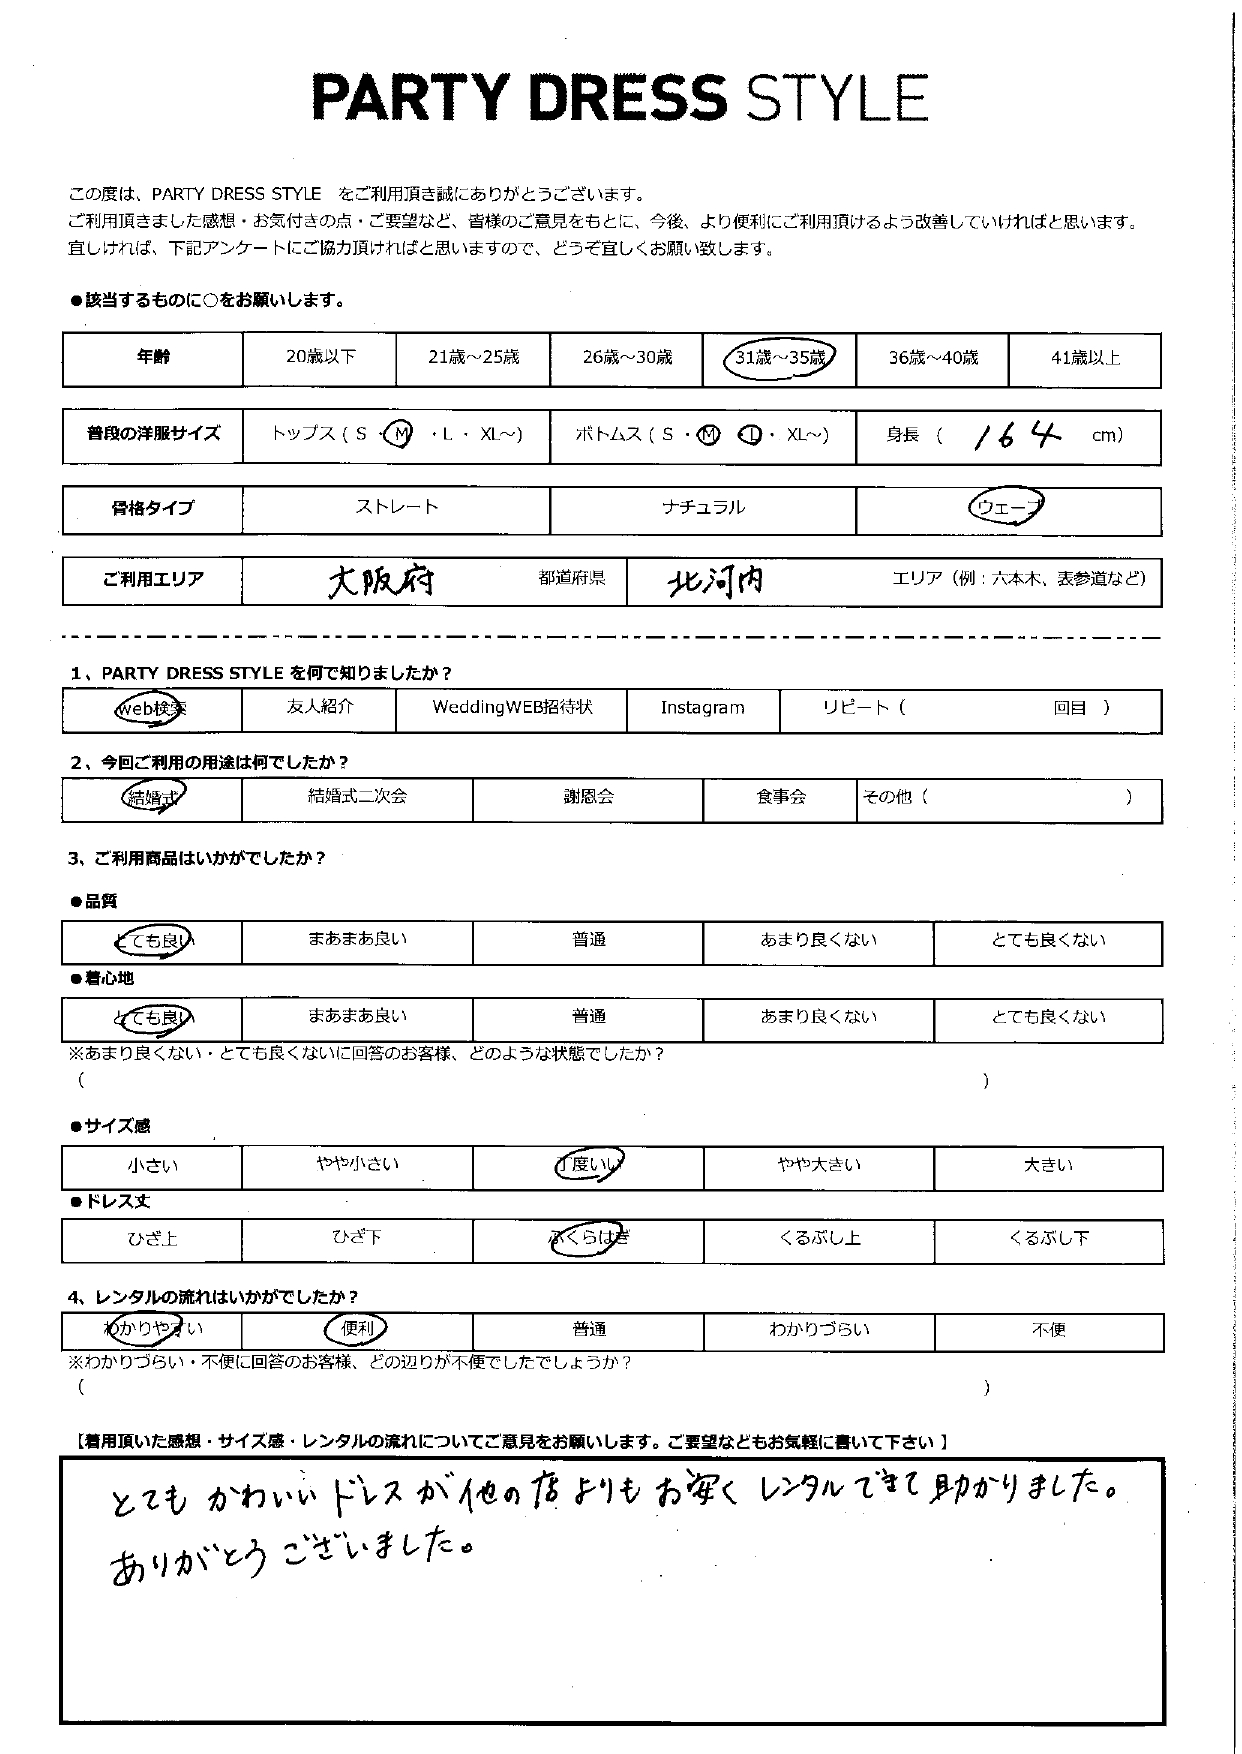 PARTY DRESS STYLE
この度は、PARTY DRESS STYLE をご利用頂き誠にありがとうございます。
ご利用頂きました感想・お気付きの点・ご要望など、皆様のご意見をもとに、今後、より便利にご利用頂けるよう改善していければと思います。
宜しければ、下記アンケートにご協力頂ければと思いますので、どうぞ宜しくお願い致します。
●該当するものに○をお願いします。
年齢 20歳以下 21歳～25歳 26歳～30歳 31歳～35歳 36歳～40歳 41歳以上
普段の洋服サイズ トップス ( S ・ M ・ L ・ XL～) ボトムス ( S ・ M ・ L ・ XL～) 身長 ( 164 cm)
骨格タイプ ストレート ナチュラル ウェーブ
ご利用エリア 大阪府 都道府県 北河内 エリア（例：六本木、表参道など）
1、PARTY DRESS STYLE を何で知りましたか？
web検索 友人紹介 WeddingWEB招待状 Instagram リピート（ 回目 ）
2、今回ご利用の用途は何でしたか？
結婚式 結婚式二次会 謝恩会 食事会 その他（ ）
3、ご利用商品はいかがでしたか？
●品質
とても良い まあまあ良い 普通 あまり良くない とても良くない
●着心地
とても良い まあまあ良い 普通 あまり良くない とても良くない
※あまり良くない・とても良くないに回答のお客様、どのような状態でしたか？
（ ）
●サイズ感
小さい やや小さい 丁度いい やや大きい 大きい
●ドレス丈
ひざ上 ひざ下 ふくらはぎ くるぶし上 くるぶし下
4、レンタルの流れはいかがでしたか？
わかりやすい 便利 普通 わかりづらい 不便
※わかりづらい・不便に回答のお客様、どの辺りが不便でしたでしょうか？
（ ）
【着用頂いた感想・サイズ感・レンタルの流れについてご意見をお願いします。ご要望などもお気軽に書いて下さい 】
とても かわいい ドレス が 他の 店 よりも お安く レンタル できて 助かりました。
ありがとう ございました。